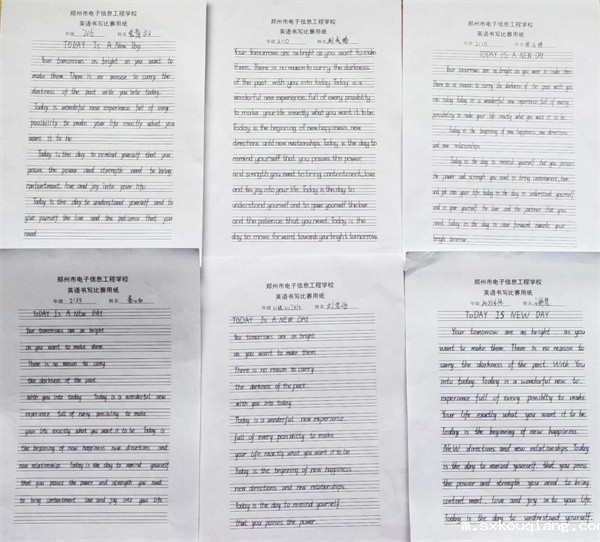 郑州市电子信息工程学校
英语书写比赛用纸
年级 姓名
TODAY Is A New Day
Your tomorrows are as bright as you want to
make them. There is no reason to carry the
darkness of the past with you into today.
Today is wonderful new experience full of every
possibility to make your life exactly what you
want it to be
Today is the day to remind yourself that you
posses the power and strength need to bring
contentment, love and joy into your life.
Today is the day to understand yourself and to
give yourself the love and the patience that you
need
郑州市电子信息工程学校
英语书写比赛用纸
年级 2110 姓名
Your tomorrows are as bright as you want to make
them. There is no reason to carry the darkness
of the past with you into today. Today is a
wonderful new experience. full of every possibility
to make your life exactly what you want it to be.
Today is the beginning of new happiness, new
directions and new relationships. Today is the day to
remind yourself that you possess the power
and strength you need to bring contentment, love
and joy into your life. Today is the day to
understand yourself and to give yourself the love
and the patience that you need. Today is the
day to move forward towards your bright tomorrow.
郑州市电子信息工程学校
英语书写比赛用纸
年级 姓名
TODAY IS A NEW DAY
Your tomorrows are as bright as you want to make them.
There is no reason to carry the darkness of the past with you
into today. Today is a wonderful new experience full of every
possibility to make your life exactly what you want it to be.
Today is the beginning of new happiness, new directions
and new relationships.
Today is the day to remind yourself that you possess
the power and strength you need to bring contentment, love
and joy into your life. today is the day to understand yourself
and to give yourself the love and the patience that you
need. Today is the day to move forward towards your
bright tomorrow.
郑州市电子信息工程学校
英语书写比赛用纸
年级 2123 姓名
TODAY IS A NEW DAY
Your tomorrows are as bright
as you want to make them.
There is no reason to carry
the darkness of the past
with you into today. Today is a wonderful new
experience full of every possibility to make
your life exactly what you want it to be Today is
the beginning of new happiness new directions and
new relationships Today is the day to remind yourself
that you possess the power and strength you need
to bring contentment love and joy into your life
郑州市电子信息工程学校
英语书写比赛用纸
年级 姓名
TODAY IS A NEW DAY
You tomorrows are as bright
as you want to make them
There is no reason to carry
the darkness of the past
with you into today
Today is a wonderful new experience
full of every possibility to make
your life exactly what you want it to be
Today is the beginning of new happiness
new directions and new relationships
Today is the day to remind yourself
that you possess the power
郑州市电子信息工程学校
英语书写比赛用纸
年级 姓名
TODAY IS NEW DAY
Your tomorrow are as bright as you
want to make them. There is no reason to
carry the darkness of the past. With You
into today. Today is a wonderful new
experience full of every to make
Your life exactly what you want it to be
Today is the beginning of new happiness
New directions and new relationships Today
is the day to remind yourself that you
the power and strength you need to bring
content ment, love and joy in to your life
Today is the day to understand yourself
m.sxkouqiang.com